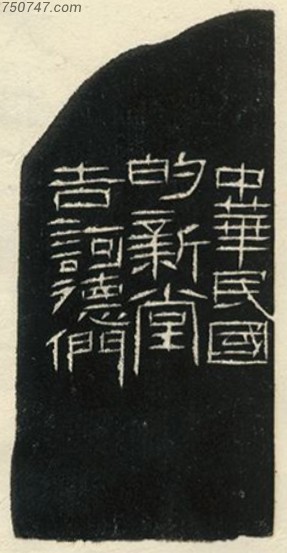 750747.com
中華民國
的新堂
吉訶德們